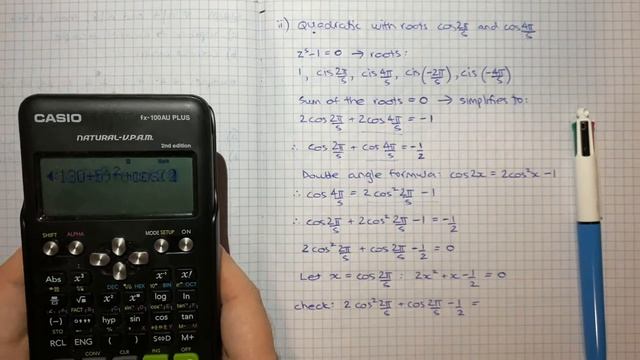 ii) Quadratic with roots cos 2π/5 and cos 4π/5
z⁵-1=0 → roots:
1, cis 2π/5, cis 4π/5, cis(-2π/5), cis(-4π/5)
Sum of the roots = 0 → simplifies to:
2cos 2π/5 + 2cos 4π/5 = -1
∴ cos 2π/5 + cos 4π/5 = -1/2
Double angle formula: cos2x = 2cos²x - 1
∴ cos 4π/5 = 2cos² 2π/5 - 1
∴ cos 2π/5 + 2cos² 2π/5 - 1 = -1/2
2cos² 2π/5 + cos 2π/5 - 1/2 = 0
Let x = cos 2π/5 : 2x² + x - 1/2 = 0
check: 2cos² 2π/5 + cos 2π/5 - 1/2 =
CASIO
fx-100AU PLUS
NATURAL-V.P.A.M.
2nd edition
SHIFT ALPHA MODE SETUP ON
Abs x³ x⁻¹ x!
log ln
(-) hyp sin cos tan
RCL ENG ( ) S⇔D M+